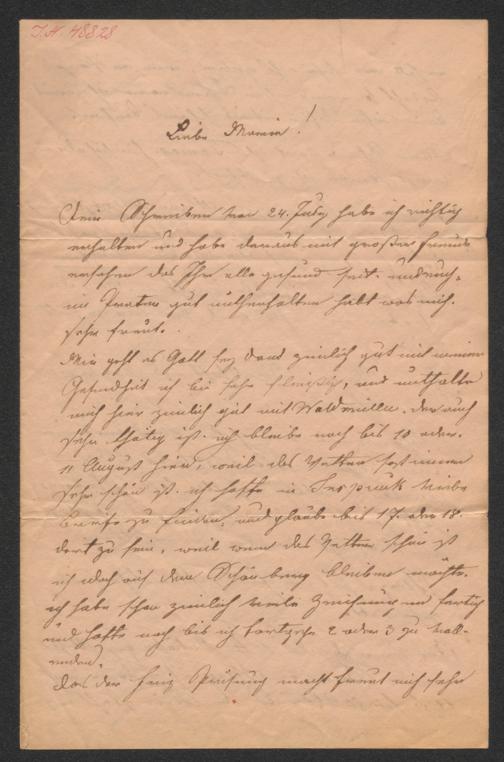 I.N. 48828
Liebe Mamin!
Dein Schreiben von 24. July habe ich richtig
erhalten und habe daraus mit großer Freude
ersehen das Ihr alle gesund seit und auch
im Prater gut unterhalten habt was mich
sehr freut.
Mir geht es Gott sey Dank zimlich gut mit meiner
Gesundheit ich bin sehr fleißig, und unthalte
mich hier zimlich gut mit Waldmüller. der auch
sehr thätig ist. ich bleibe noch bis 10 oder
11 August hier, weil das Wetter fast immer
sehr schön ist. ich hoffe in Inspruk
Briefe zu finden, und glaube bis 17. oder 18.
dort zu sein, weil wenn das Wetter schön ist
ich noch auf dem bleiben möchte.
ich habe schon zimlich viele Zeichnungen fertig
und hoffe noch bis ich fortgehe 2 oder 3 zu voll-
enden.
Das der Prüfung macht freut mich sehr